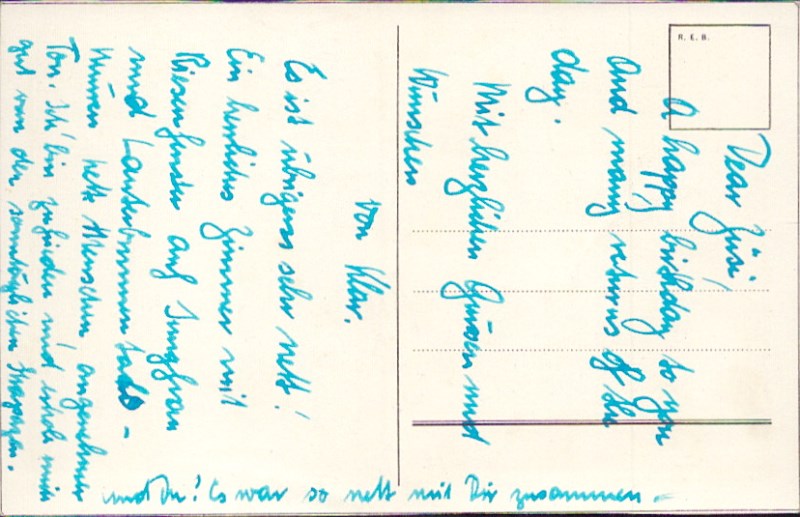 R. E. B.
Dear Züsi!
A happy birthday to you
And many returns of the
day.
Mit herzlichen Grüssen und
Wünschen
von Klar.
Es ist übrigens sehr nett!
Ein herrliches Zimmer mit
Riesenfenster auf Jungfrau
und
nette Menschen angenehmer
Ton. Ich bin zufrieden und erhole mich
gut von den Strapazen.
und Du! Es war so nett mit Dir zusammen.-